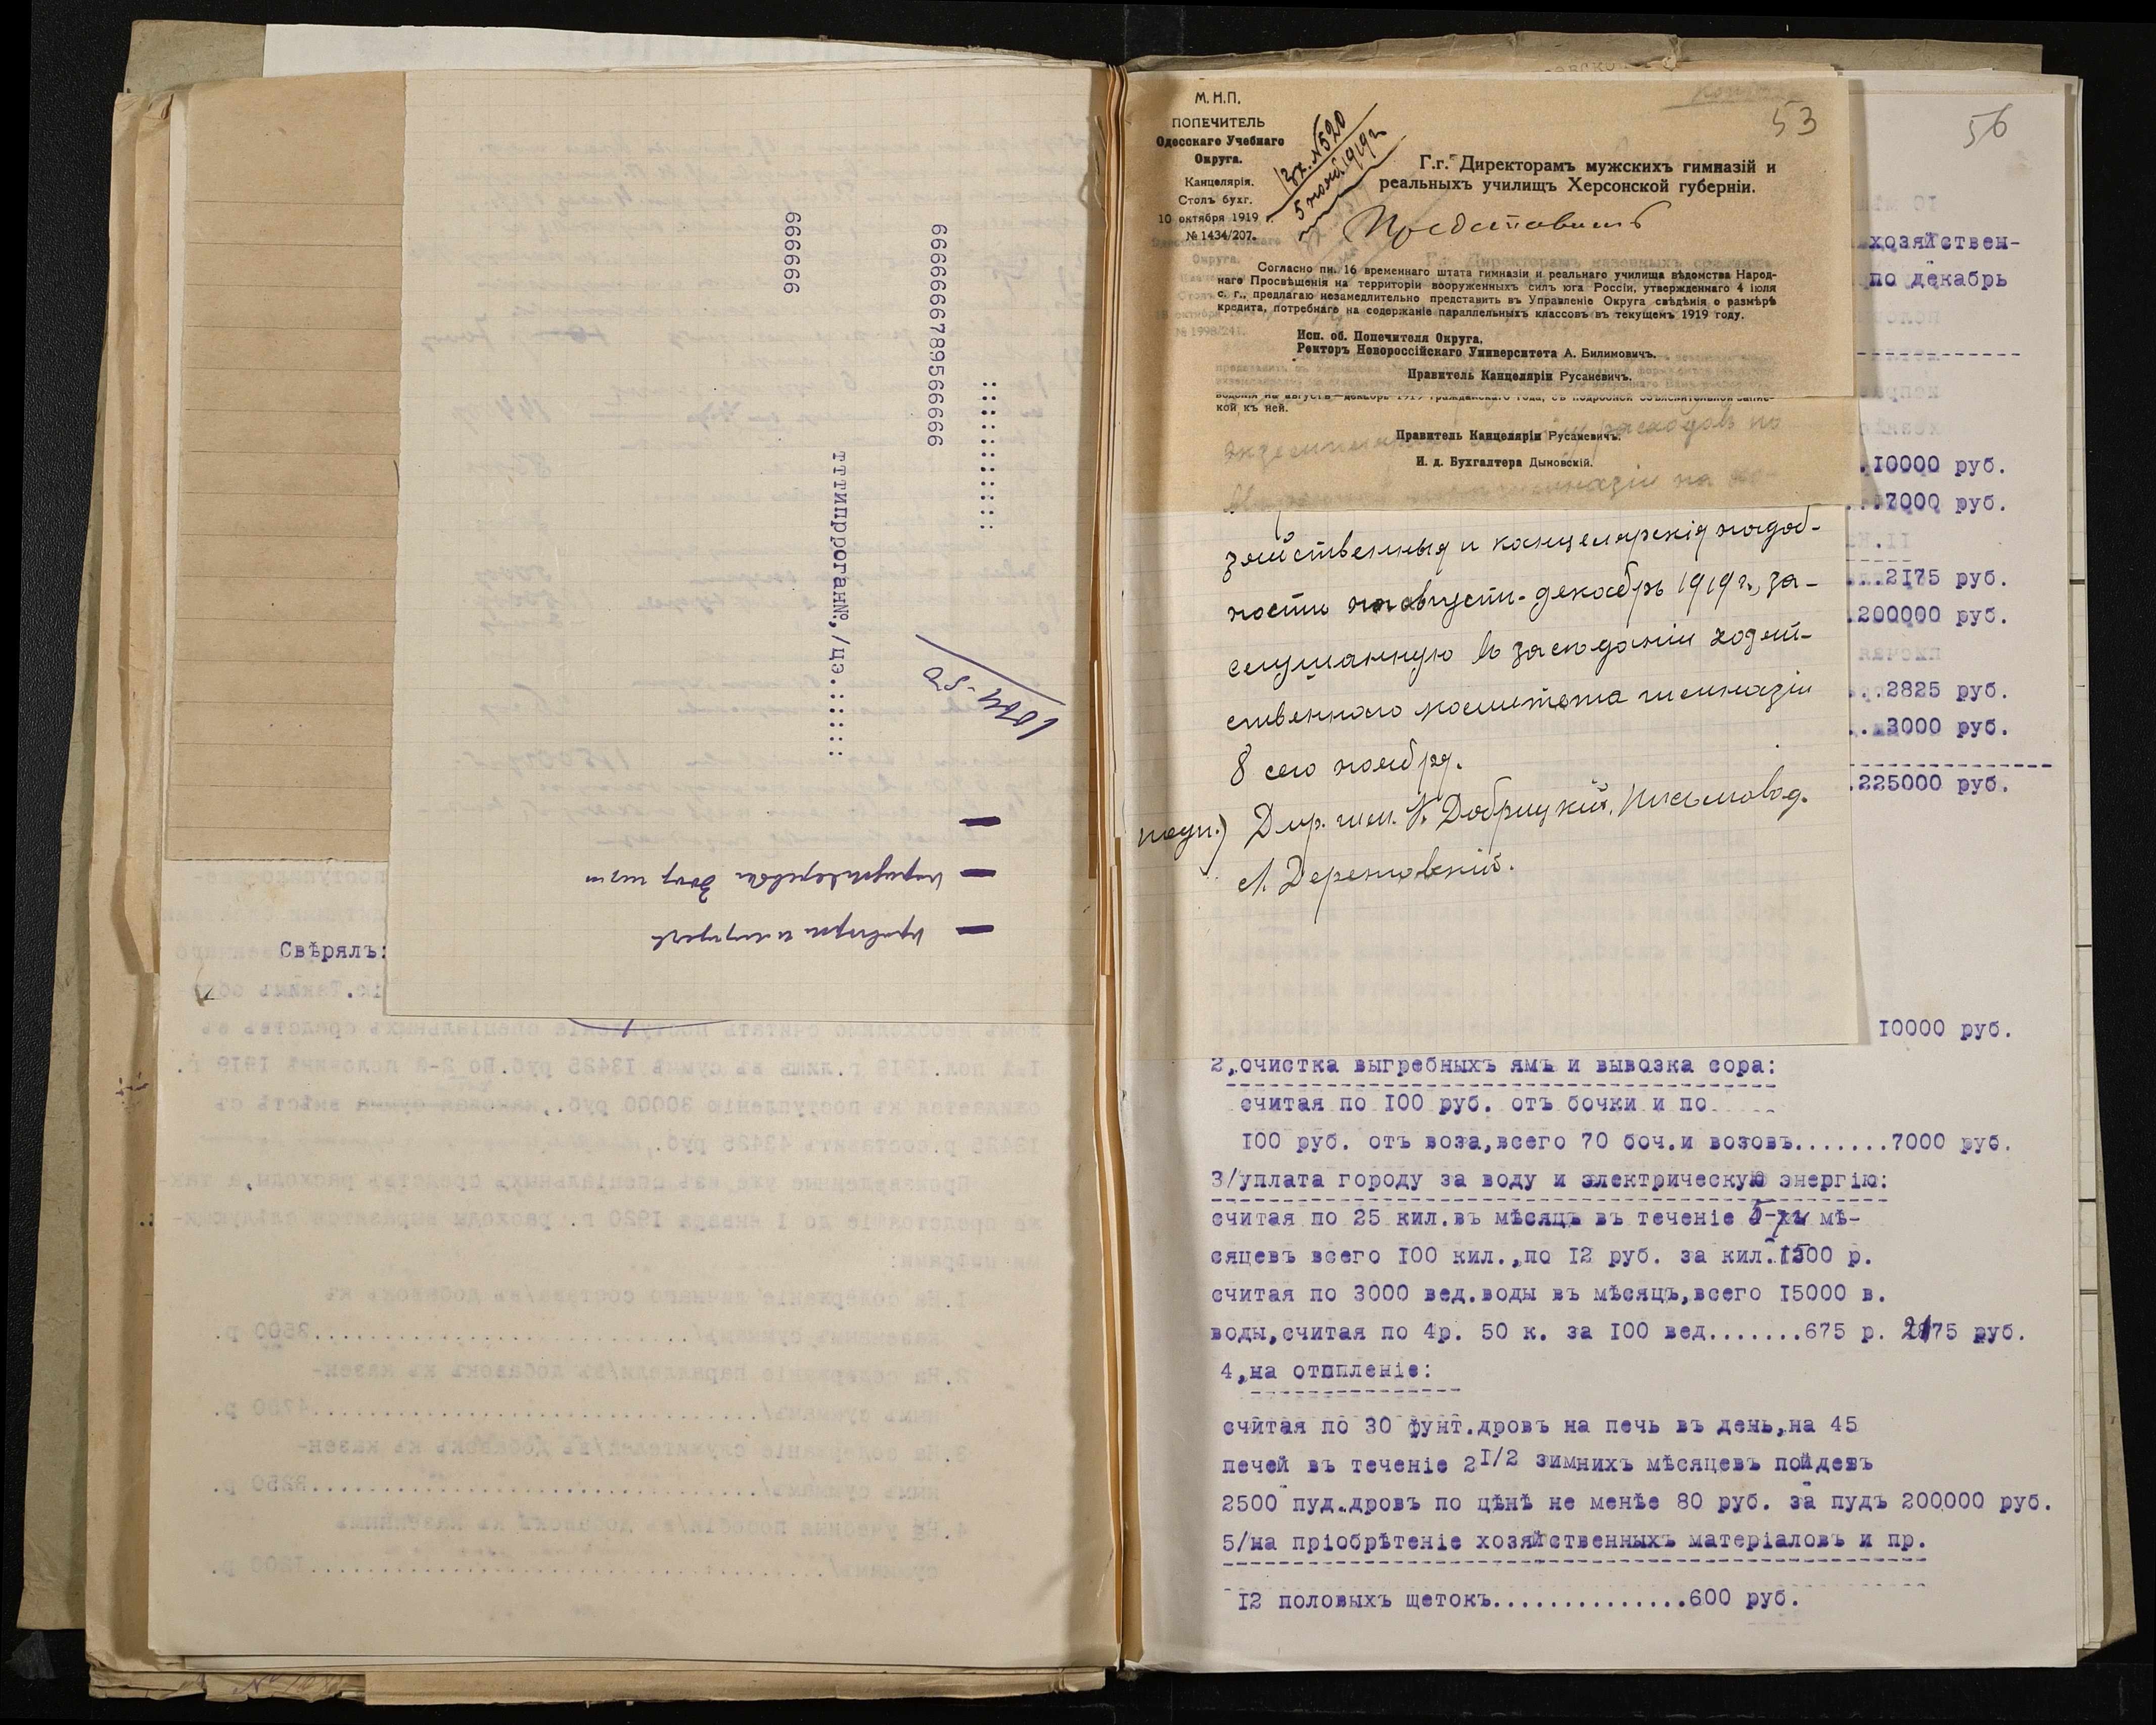 666666
6666666678956666666
::::::::::::
тттипрроган№,/цэ.:::::::
1074-50
Свѣрялъ:
53
56
М. Н. П.
ПОПЕЧИТЕЛЬ
Одесскаго Учебнаго
Округа.
Канцелярія.
Столъ бухг.
10 октября 1919 г.
№ 1434/207.
Вх. №520
5 нояб. 1919 г.
Г.г. Директорамъ мужскихъ гимназій и
реальныхъ училищъ Херсонской губерніи.
Представить
Согласно пн. 16 временнаго штата гимназіи и реальнаго училища вѣдомства Народ-
наго Просвѣщенія на территоріи вооруженныхъ силъ юга Россіи, утвержденнаго 4 іюля
с. г., предлагаю незамедлительно представить въ Управленіе Округа свѣдѣнія о размѣрѣ
кредита, потребнаго на содержаніе параллельныхъ классовъ въ текущемъ 1919 году.
Исп. об. Попечителя Округа,
Ректоръ Новороссійскаго Университета А. Билимовичъ.
Правитель Канцеляріи Русаневичъ.
веденія на августъ—декабрь 1919 гражданскаго года, съ подробной объяснительной запис-
кой къ ней.
Правитель Канцеляріи Русаневичъ.
И. д. Бухгалтера Дыновскій.
зяйственныя и канцелярскія надоб-
ности на августъ-декабрь 1919 г., за-
слушанную въ засѣданіи хозяй-
ственнаго комитета гимназіи
8 сего ноября.
подп.) Дир. гим. К. Добрицкій. Письмовод.
Л. Дереновскій.
хозяйствен-
по декабрь
.10000 руб.
...7000 руб.
...2175 руб.
.200000 руб.
...2825 руб.
..3000 руб.
.225000 руб.
10000 руб.
2,очистка выгребныхъ ямъ и вывозка сора:
считая по 100 руб. отъ бочки и по
100 руб. отъ воза,всего 70 боч.и возовъ.......7000 руб.
3/уплата городу за воду и электрическую энергію:
считая по 25 кил.въ мѣсяцъ въ теченіе 5-ти мѣ-
сяцевъ всего 100 кил.,по 12 руб. за кил.1500 р.
считая по 3000 вед.воды въ мѣсяцъ,всего 15000 в.
воды,считая по 4р. 50 к. за 100 вед.......675 р. 2175 руб.
4,на отопленіе:
считая по 30 фунт.дровъ на печь въ день,на 45
печей въ теченіе 2 1/2 зимнихъ мѣсяцевъ пойдетъ
2500 пуд.дровъ по цѣнѣ не менѣе 80 руб. за пудъ 200000 руб.
5/на пріобрѣтеніе хозяйственныхъ матеріаловъ и пр.
12 половыхъ щетокъ..............600 руб.